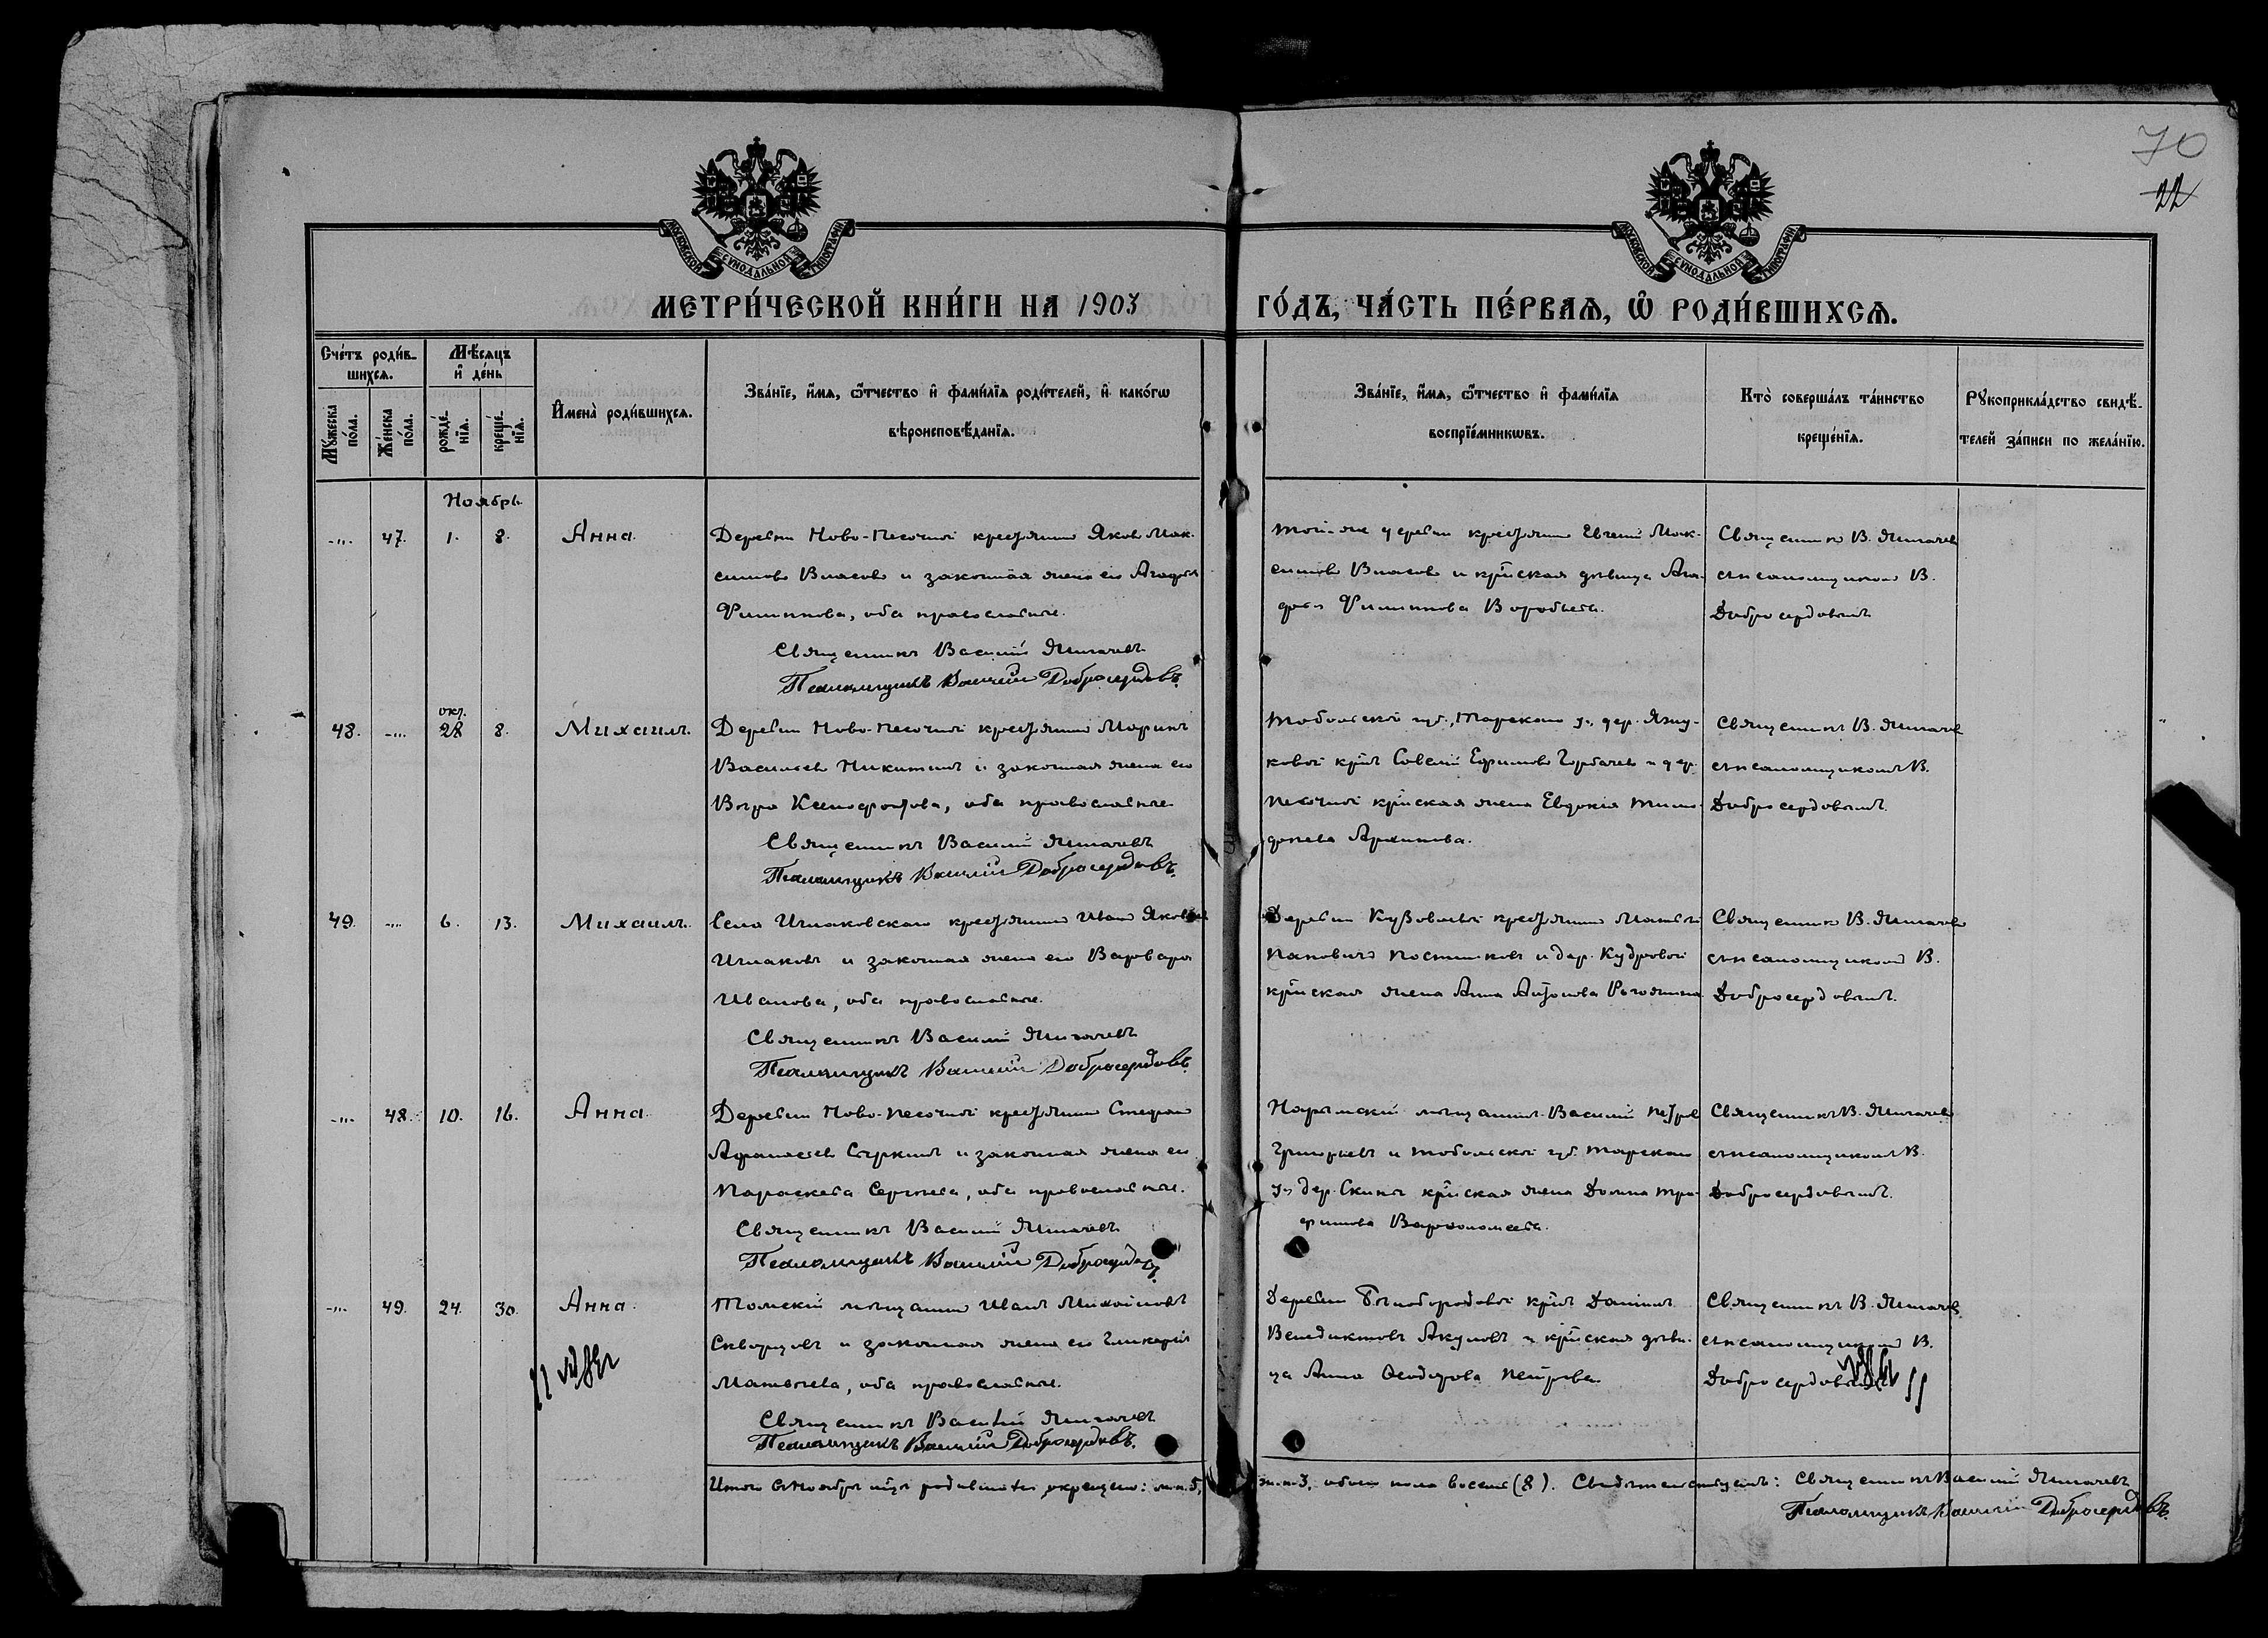 70
22
МОСКОВСКОЙ СѴНОДАЛЬНОЙ ТИПОГРАФІИ
МОСКОВСКОЙ СѴНОДАЛЬНОЙ ТИПОГРАФІИ
МЕТРИ́ЧЕСКОЙ КНИ́ГИ НА 1903 ГО́ДЪ, ЧА́СТЬ ПЕ́РВАѦ, Ѡ҆ РОДИ́ВШИХСѦ.
Сче́тъ роди́в-
шихсѧ.
Мꙋ́жеска по́ла.
Же́нска по́ла.
Мѣ́сѧцъ
и҆ де́нь
рожде́-
нїѧ.
креще́-
нїѧ.
И҆мена̀ роди́вшихсѧ.
Зва́нїе, и҆́мѧ, ѻ҆́тчество и҆ фами́лїѧ роди́телей, и҆ како́гѡ
вѣроисповѣ́данїѧ.
Зва́нїе, и҆́мѧ, ѻ҆́тчество и҆ фами́лїѧ
воспрїе́мникѡвъ.
Кто̀ соверша́лъ та́инство
креще́нїѧ.
Рꙋкоприкла́дство свидѣ́-
телей за́писи по жела́нїю.
Ноябрь
-"- 47. 1. 8. Анна.
Деревни Ново-Песочной крестьянинъ Яковъ Мак-
симовъ Власовъ и законная жена его Агафья
Филиппова, оба православные.
Священникъ Василій
Псаломщикъ Василій Добросердовъ.
той же деревни крестьянинъ Евгеній Мак-
симовъ Власовъ и кр̃нская дѣвица Ага-
фья Филиппова Воробьева.
Священникъ В.
съ псаломщикомъ В.
Добросердовымъ
48. -"- окт. 28 8. Михаилъ.
Деревни Ново-Песочной крестьянинъ
Васильевъ Никитинъ и законная жена его
Вѣра Ксенофонтова, оба православные
Священникъ Василій
Псаломщикъ Василій Добросердовъ.
Тобольской губ., Тарскаго у., дер.
ковой кр̃нъ Савелій Ефимовъ Горбачевъ и дер.
Песочной кр̃нская жена Евдокія Тимо-
феева Архипова.
Священникъ В.
съ псаломщикомъ В.
Добросердовымъ.
49. -"- 6. 13. Михаилъ.
Села Ишлаковскаго крестьянинъ Иванъ Яковлевъ
Ишлаковъ и законная жена его Варвара
Иванова, оба православные.
Священникъ Василій
Псаломщикъ Василій Добросердовъ.
Деревни крестьянинъ Матвѣй
и дер. Кудровой
кр̃нская жена Анна Антонова
Священникъ В.
съ псаломщикомъ В.
Добросердовымъ.
-"- 48. 10. 16. Анна.
Деревни Ново-Песочной крестьянинъ Стефанъ
Афанасьевъ и законная жена его
Параскева Сергѣева, оба православные.
Священникъ Василій
Псаломщикъ Василій Добросердовъ.
Нарымскій мѣщанинъ Василій Петровъ
Григорьевъ и Тобольской губ. Тарскаго
у., дер. кр̃нская жена Домна Тро-
фимова Варфоломеева.
Священникъ В.
съ псаломщикомъ В.
Добросердовымъ.
-"- 49. 24. 30. Анна.
Томскій мѣщанинъ Иванъ Михайловъ
Скворцовъ и законная жена его Гликерія
Матвѣева, оба православные.
Священникъ Василій
Псаломщикъ Василій Добросердовъ.
Деревни Бѣлобородовой кр̃нъ Даніилъ
Венедиктовъ Акуловъ и кр̃нская дѣви-
ца Анна Ѳеодорова Петрова.
Священникъ В.
съ псаломщикомъ В.
Добросердовымъ
Итого въ Ноябрѣ м̃цѣ родившихся и крещено: м. п. 5, ж. п. 3, обоего пола восемь (8). Свидѣтельствуемъ: Священникъ Василій
Псаломщикъ Василій Добросердовъ.